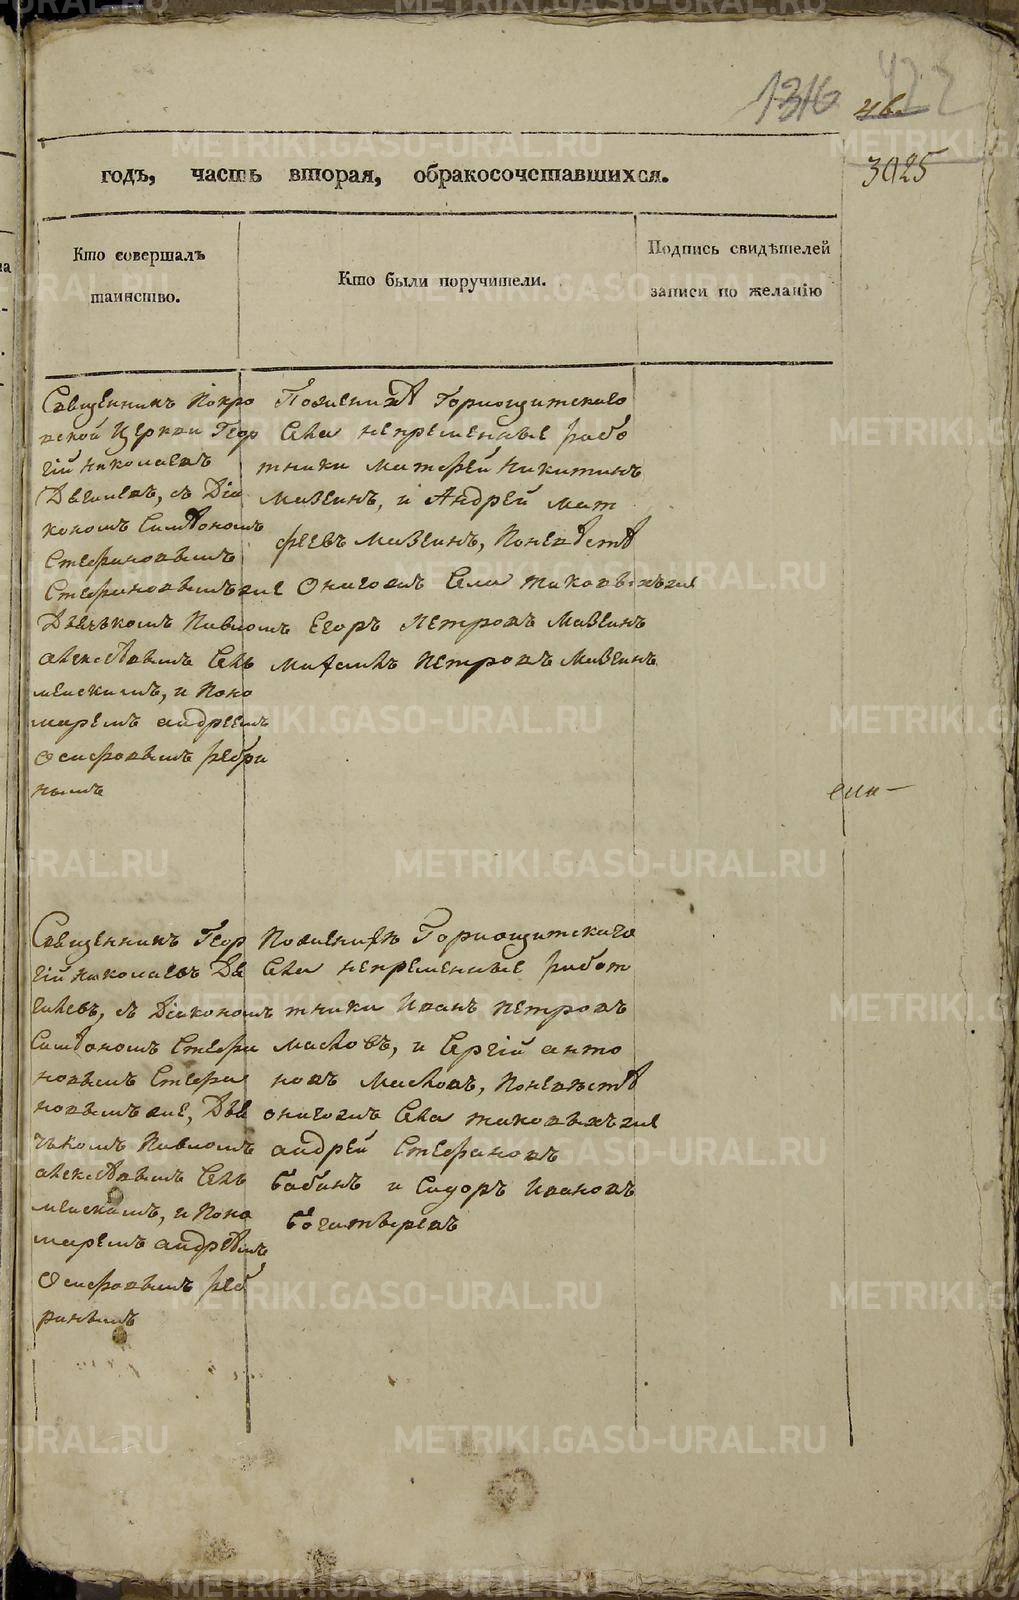 1316 422
4в.
3025
годъ, часть вторая, обракосочетавшихся.
Кто совершалъ
таинство.
Кто были поручители.
Подпись свидѣтелей
записи по желанію
Священникъ Покро
вской Церкви Геор
гій Николаевъ
с Діа
кономъ Симѣономъ
Стефановымъ
Стефановымъ же
Дьячькомъ Павломъ
алексѣвымъ Сель
менскимъ, и Поно
маремъ андреемъ
Осиповымъ ребри
нымъ
По женихѣ Горнощитскаго
Села непременные рабо
тники Матфей Никитинъ
Мазеинъ, и Андрей мат
феевъ Мазеинъ, Поневѣстѣ
Оногожъ Села таковыежъ же
Егоръ Петровъ Мазеинъ
Михаилъ Петровъ Мазеинъ
ели
Священникъ Геор
гій Николаевъ
с Діякономъ
Симѣономъ Стефа
новымъ Стефа
новымъ же, Дья
чькомъ Павломъ
алексѣвымъ Сель
менскимъ, и Поно
маремъ андрѣемъ
Осиповымъ реб
ринымъ
Пожених Горнощитскаго
Села непременные работ
тники Иванъ Петровъ
масловъ, и Сергій анто
новъ Масловъ, Поневѣстѣ
оногожъ Села таковыхъ же
андрей Стефановъ
бабинъ и Сидоръ Ивановъ
богатыревъ
METRIKI.GASO-URAL.RU